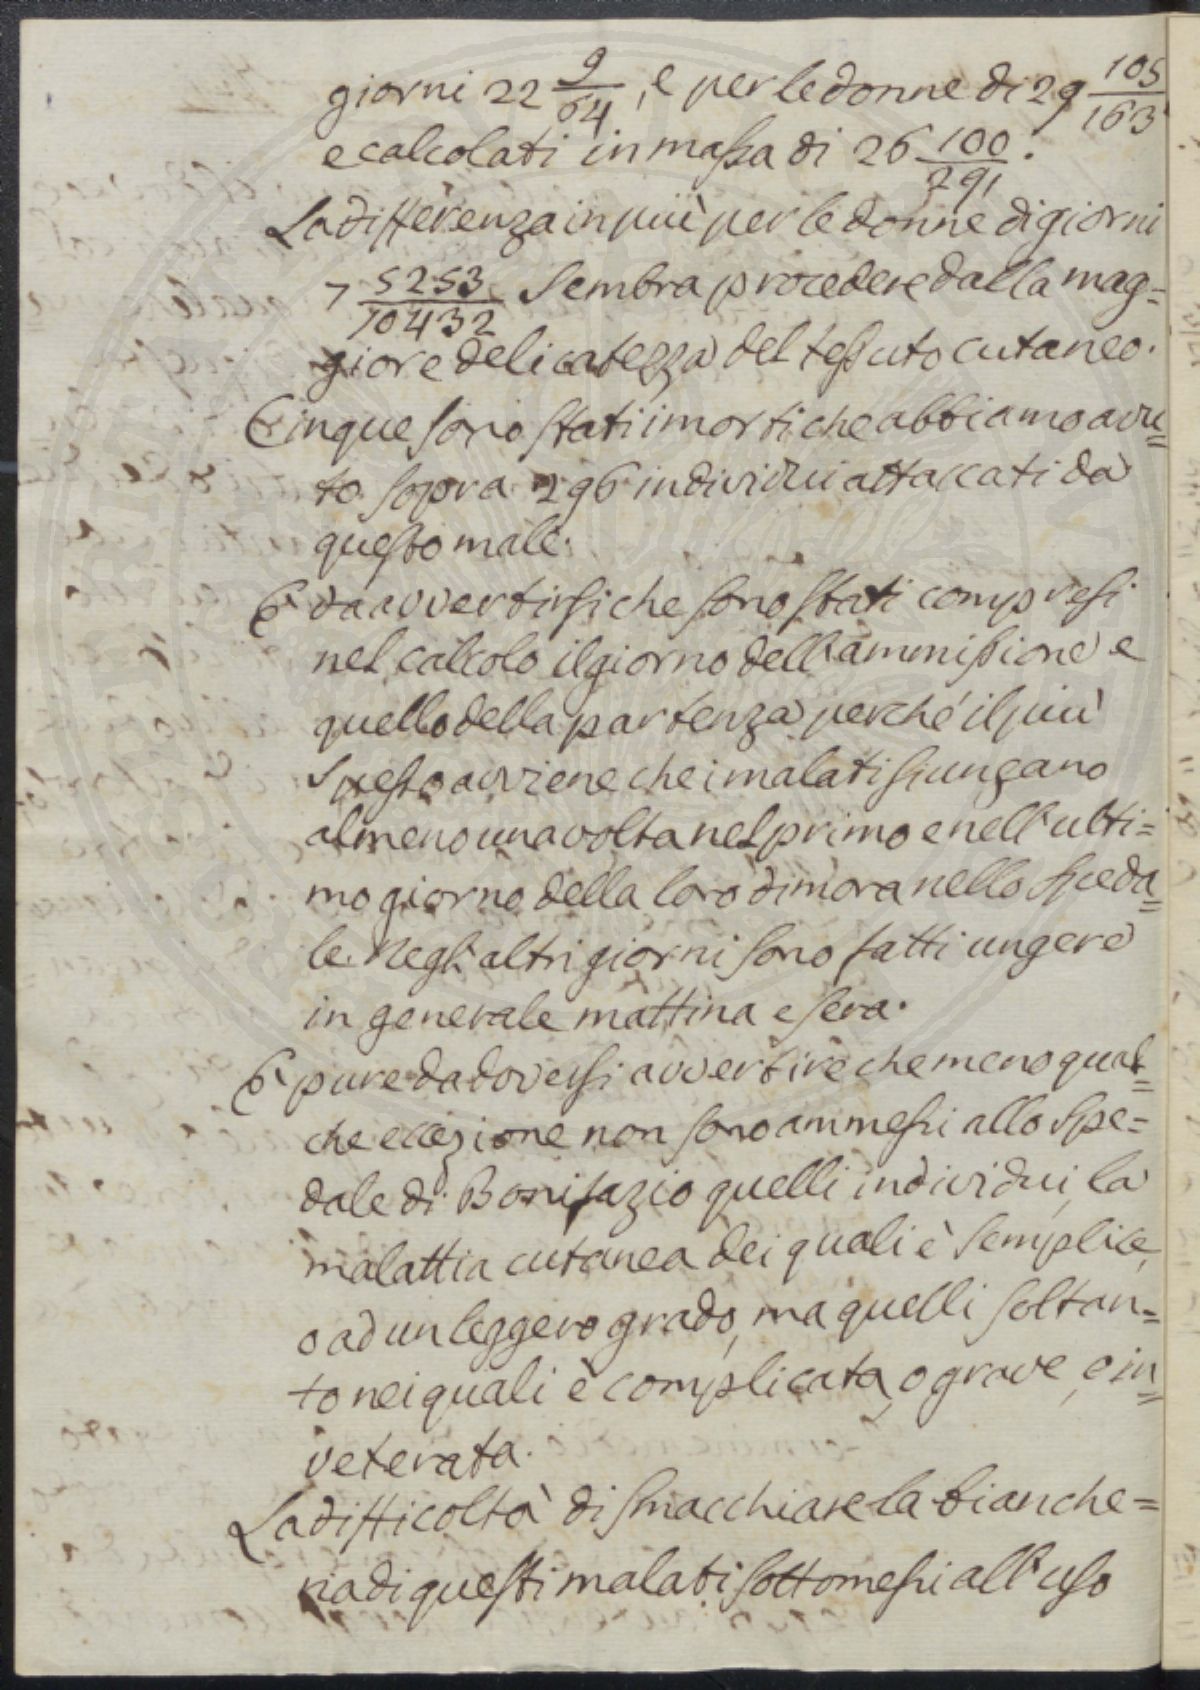 giorni 22 9/64, e per le donne di 29 105/163
e calcolati in massa di 26 100/291.
La differenza in più per le donne di giorni
7 5253/10432 sembra procedere dalla mag=
giore delicatezza del tessuto cutaneo.
Cinque sono stati i morti che abbiamo avu=
to sopra 296 individui attaccati da
questo male.
È da avvertirsi che sono stati compresi
nel calcolo il giorno dell'ammissione e
quello della partenza perché il più
spesso avviene che i malati si ungano
almeno una volta nel primo e nell'ulti=
mo giorno della loro dimora nello speda=
le. Negli altri giorni sono fatti ungere
in generale mattina e sera.
È pure da doversi avvertire che meno qual=
che eccezione non sono ammessi allo Spe=
dale di Bonifazio quelli individui, la
malattia cutanea dei quali è semplice,
o ad un leggero grado, ma quelli soltan=
to nei quali è complicata, o grave, e in=
veterata.
La difficoltà di smacchiare la bianche=
ria di questi malati sottomessi all'uso